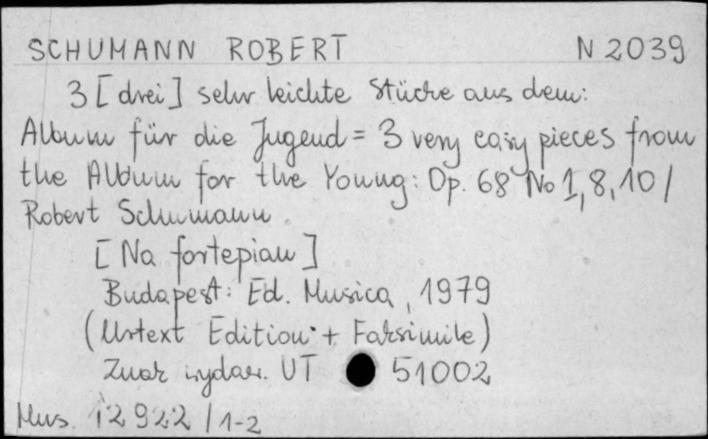 SCHUMANN ROBERT N 2039
3 [drei] sehr leichte Stücke aus dem:
Album für die Jugend = 3 very easy pieces from
the Album for the Young: Op. 68 No 1, 8, 10 /
Robert Schumann.
[Na fortepian]
Budapest: Ed. Musica, 1979
(Urtext Edition + Faksimile)
Znak wydaw. UT 51002
Mus. 12922 / 1-2